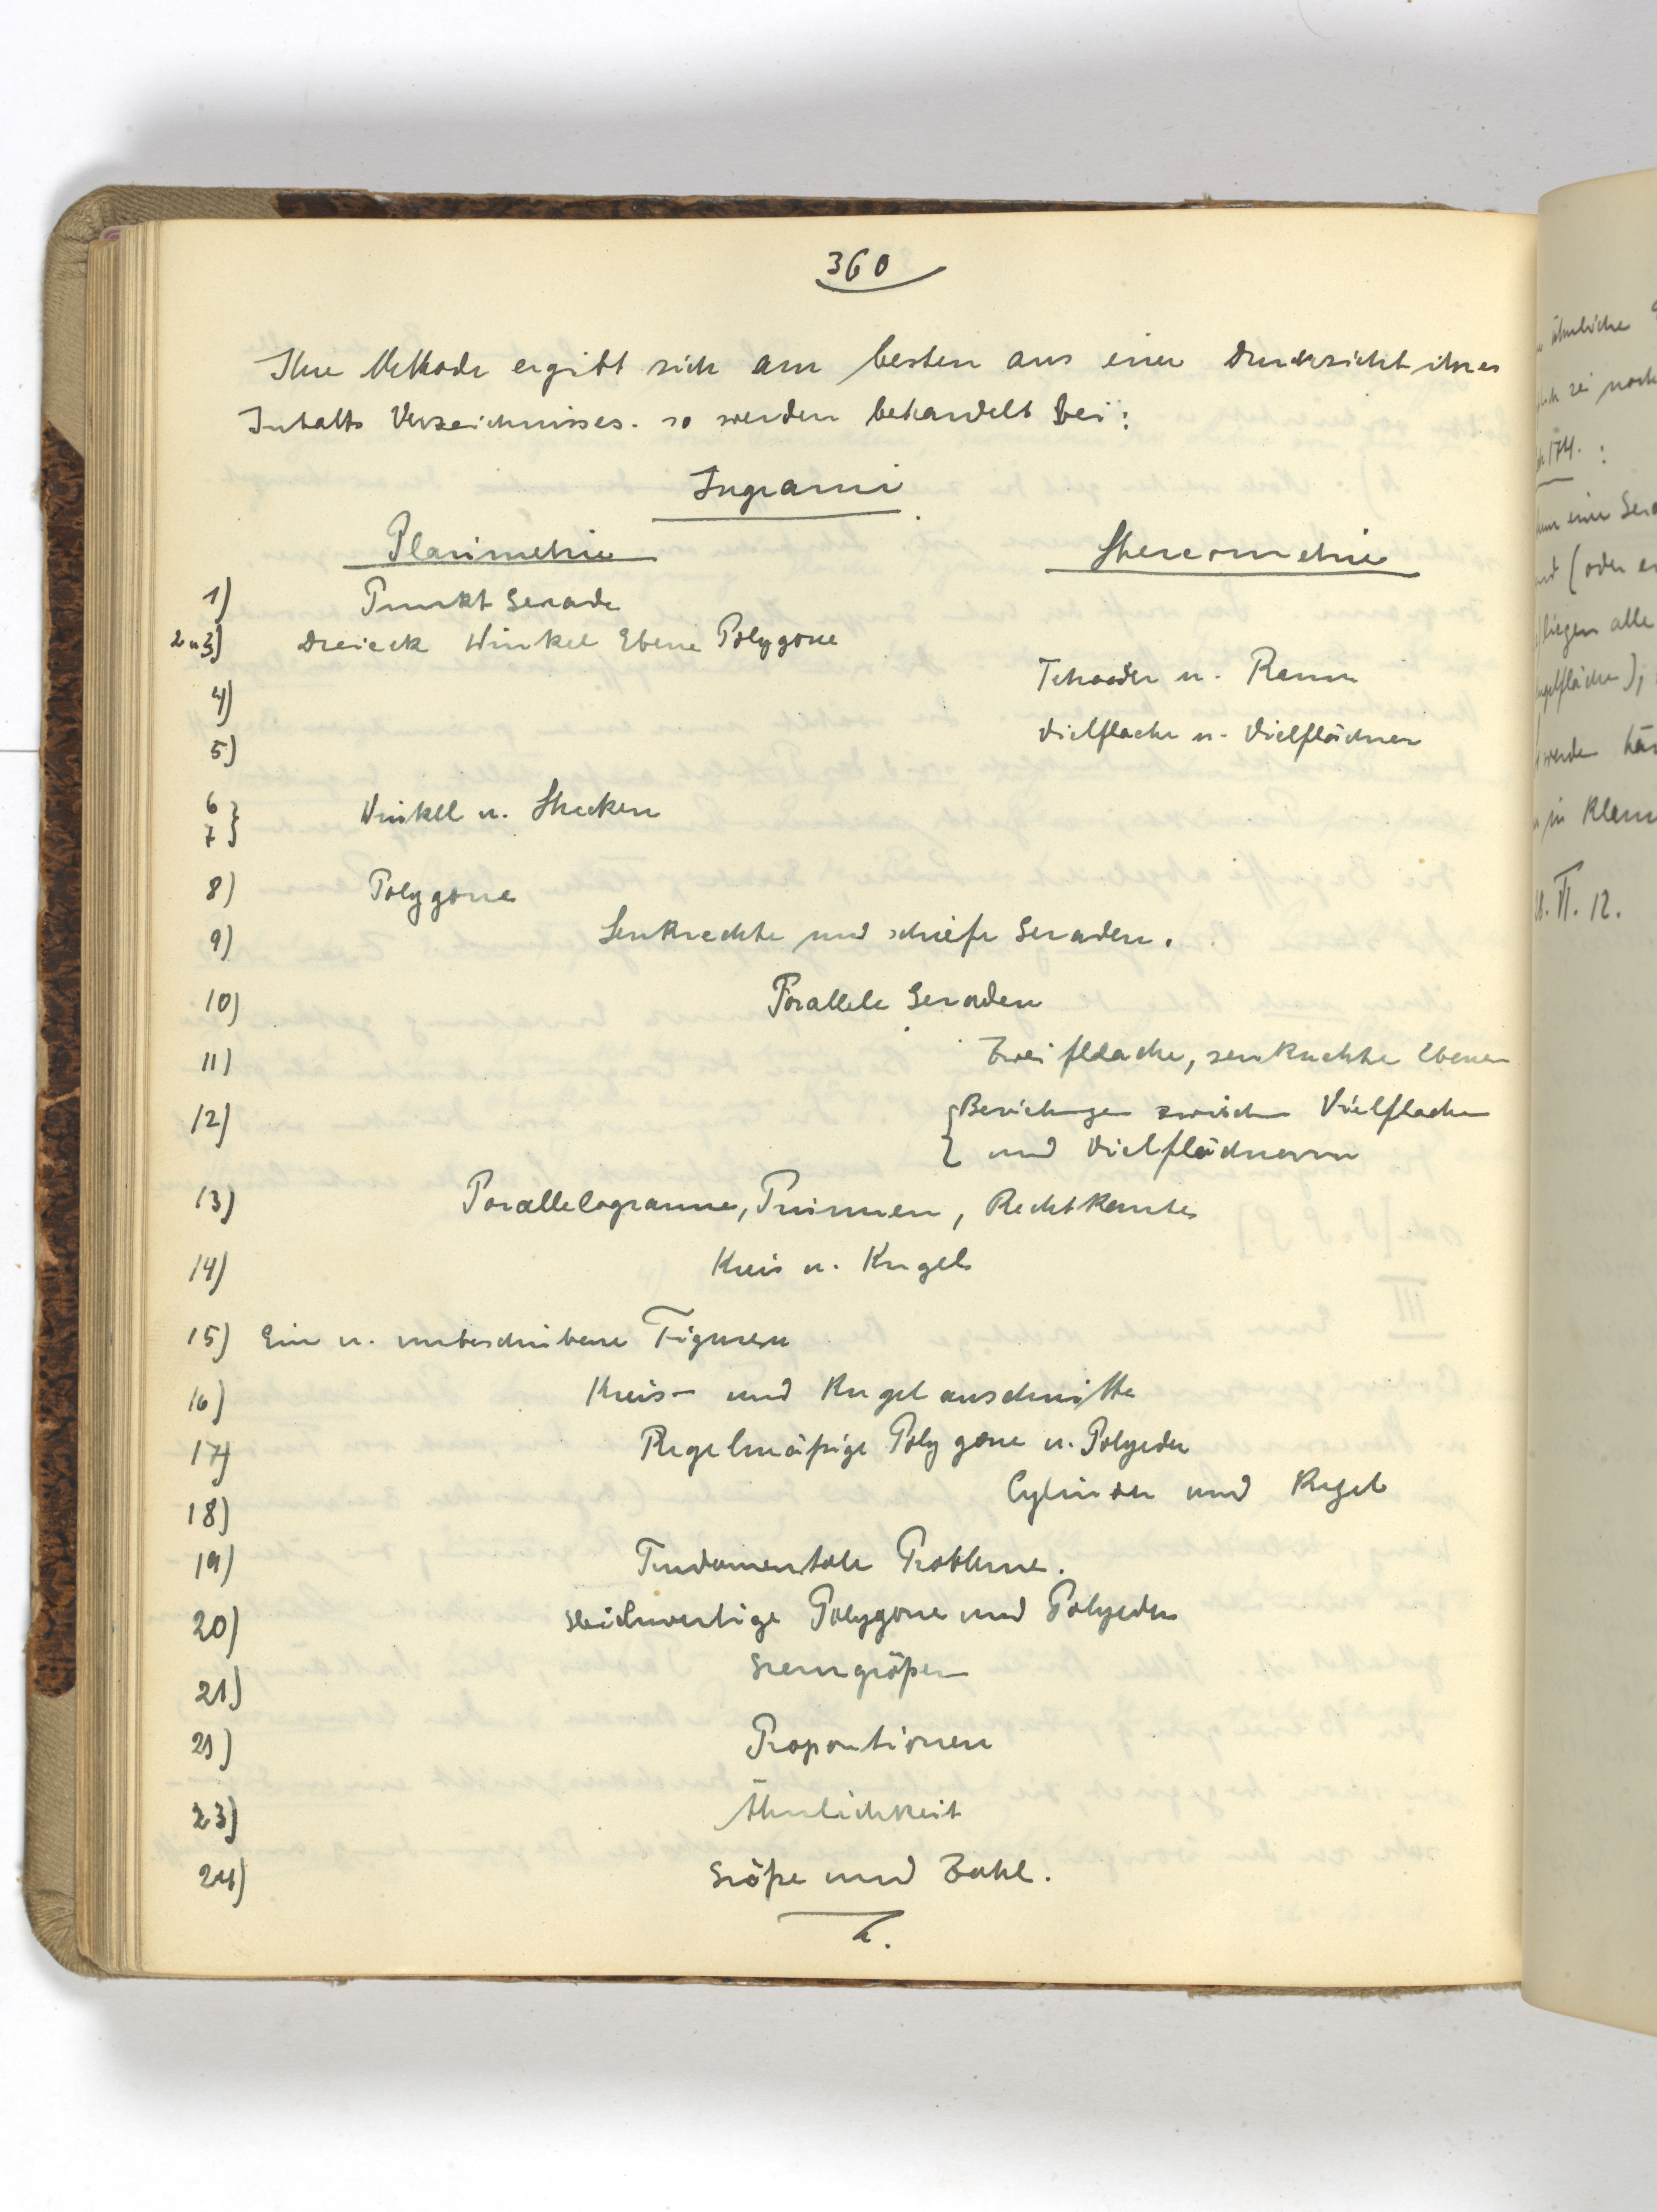 360
Ihre Methode ergibt sich am besten aus einer Durchsicht ihres
Inhalts Verzeichnisses. so werden behandelt bei:
Ingrami
Planimetrie Stereometrie
1) Punkt Gerade
2 u 3) Dreieck Winkel Ebene Polygone
4) Tetraeder u. Raum
5) Vielflache u. Vielflächner
6
7 } Winkel u. Strecken
8) Polygone
9) Senkrechte und schiefe Geraden.
10) Parallele Geraden
11) Zweiflache, senkrechte Ebenen
12) { Beziehungen zwischen Vielflachen
und Vielflächnern
13) Parallelogramme, Prismen, Rechtkante
14) Kreis u. Kugel
15) Ein u. umbeschriebene Figuren
16) Kreis- und Kugelausschnitte
17) Regelmäßige Polygone u. Polyeder
18) Cylinder und Kegel
19) Fundamentale Probleme.
20) Gleichwertige Polygone und Polyeder
21) Grenzgrößen
21) Proportionen
23) Ähnlichkeit
24) Größe und Zahl.
ähnliche
sei noch
174. :
eine Gera
(oder
liegen alle
werden
in Klam
VI. 12.